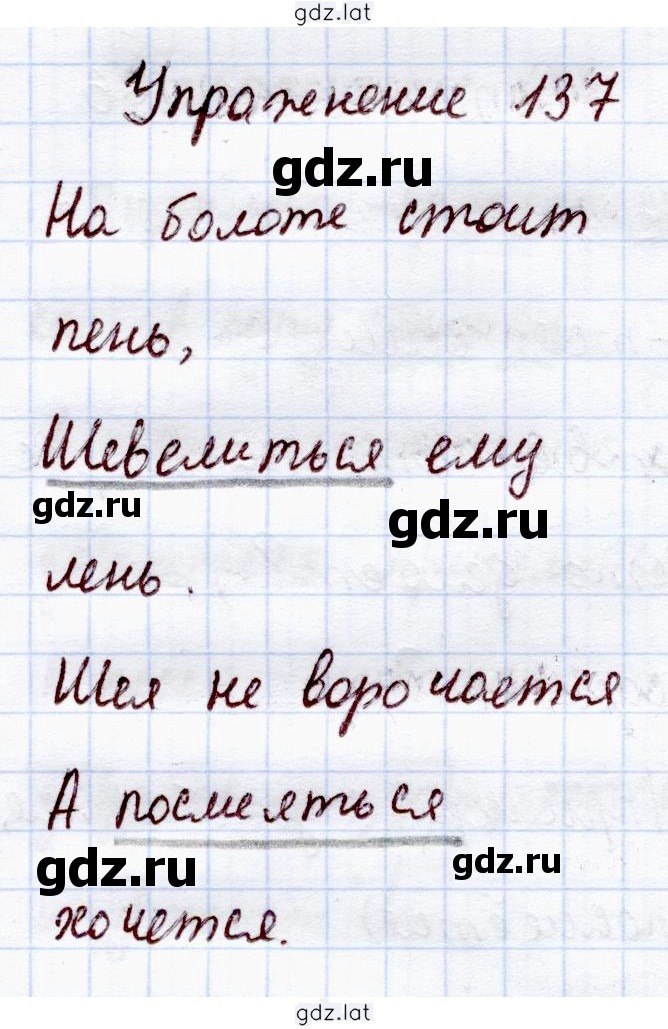 gdz.lat
Упражнение 137
gdz.ru
На болоте стоит
пень,
Шевелиться ему
gdz.ru
gdz.ru
лень.
Шея не ворочается
А посмеяться
gdz.ru
gdz.ru
хочется.
gdz.lat